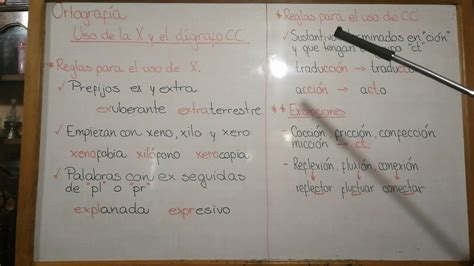 Ortografía
Uso de la X y el dígrafo CC
* Reglas para el uso de X.
✓ Prefijos ex y extra.
exuberante extraterrestre
✓ Empiezan con xeno, xilo y xero
xenofobia xilófono xerocopia
✓ Palabras con ex seguidas
de "pl" o "pr"
explanada expresivo
* Reglas para el uso de CC
✓ Sustantivos terminados en "ción"
y que tengan "ct".
traducción → traduc
acción → acto
** Excepciones
- Cocción, fricción, confección
micción → ct.
- Reflexión, fluxión, conexión
reflector fluctuar conectar